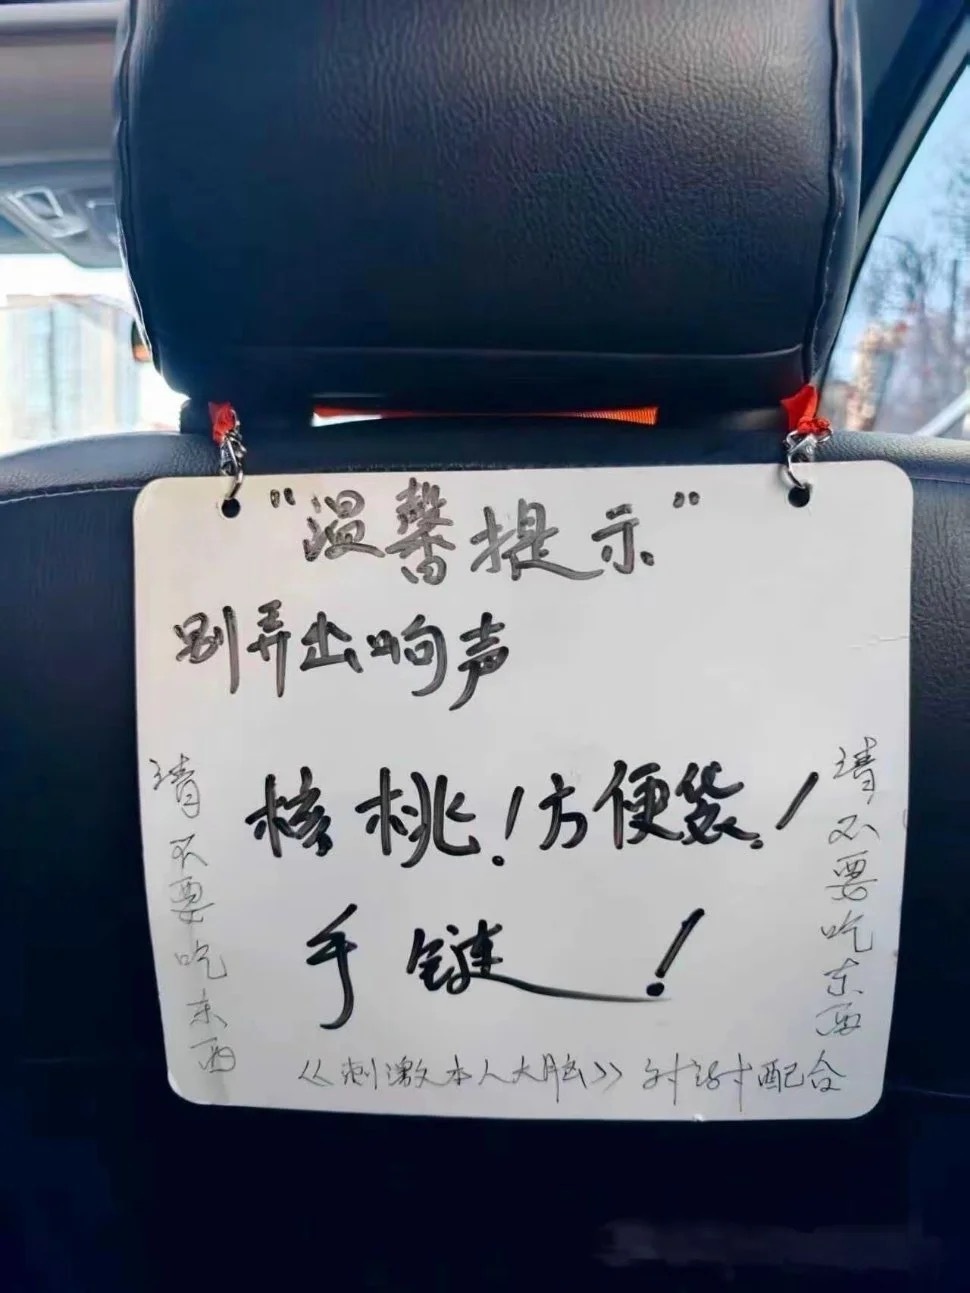 "温馨提示"
别弄出响声
核桃！方便袋！
手链！
请不要吃东西
请不要吃东西
《刺激本人大脑》谢谢配合